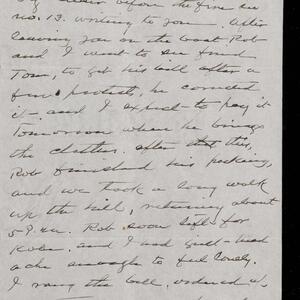 before the fire in
no. 13. writing to you. After
leaving you on the boat Rob
and I went to see
Tom, to get his bill after a
few protests, he
it - and I expect to pay it
tomorrow when he brings
the clothes. After that this,
Rob finished his packing,
and we took a long walk
up the hill, returning about
5 P.M. Rob soon left for
Kobe. and I had just-
ache enough to feel lonely.
I rang the bell, ordered